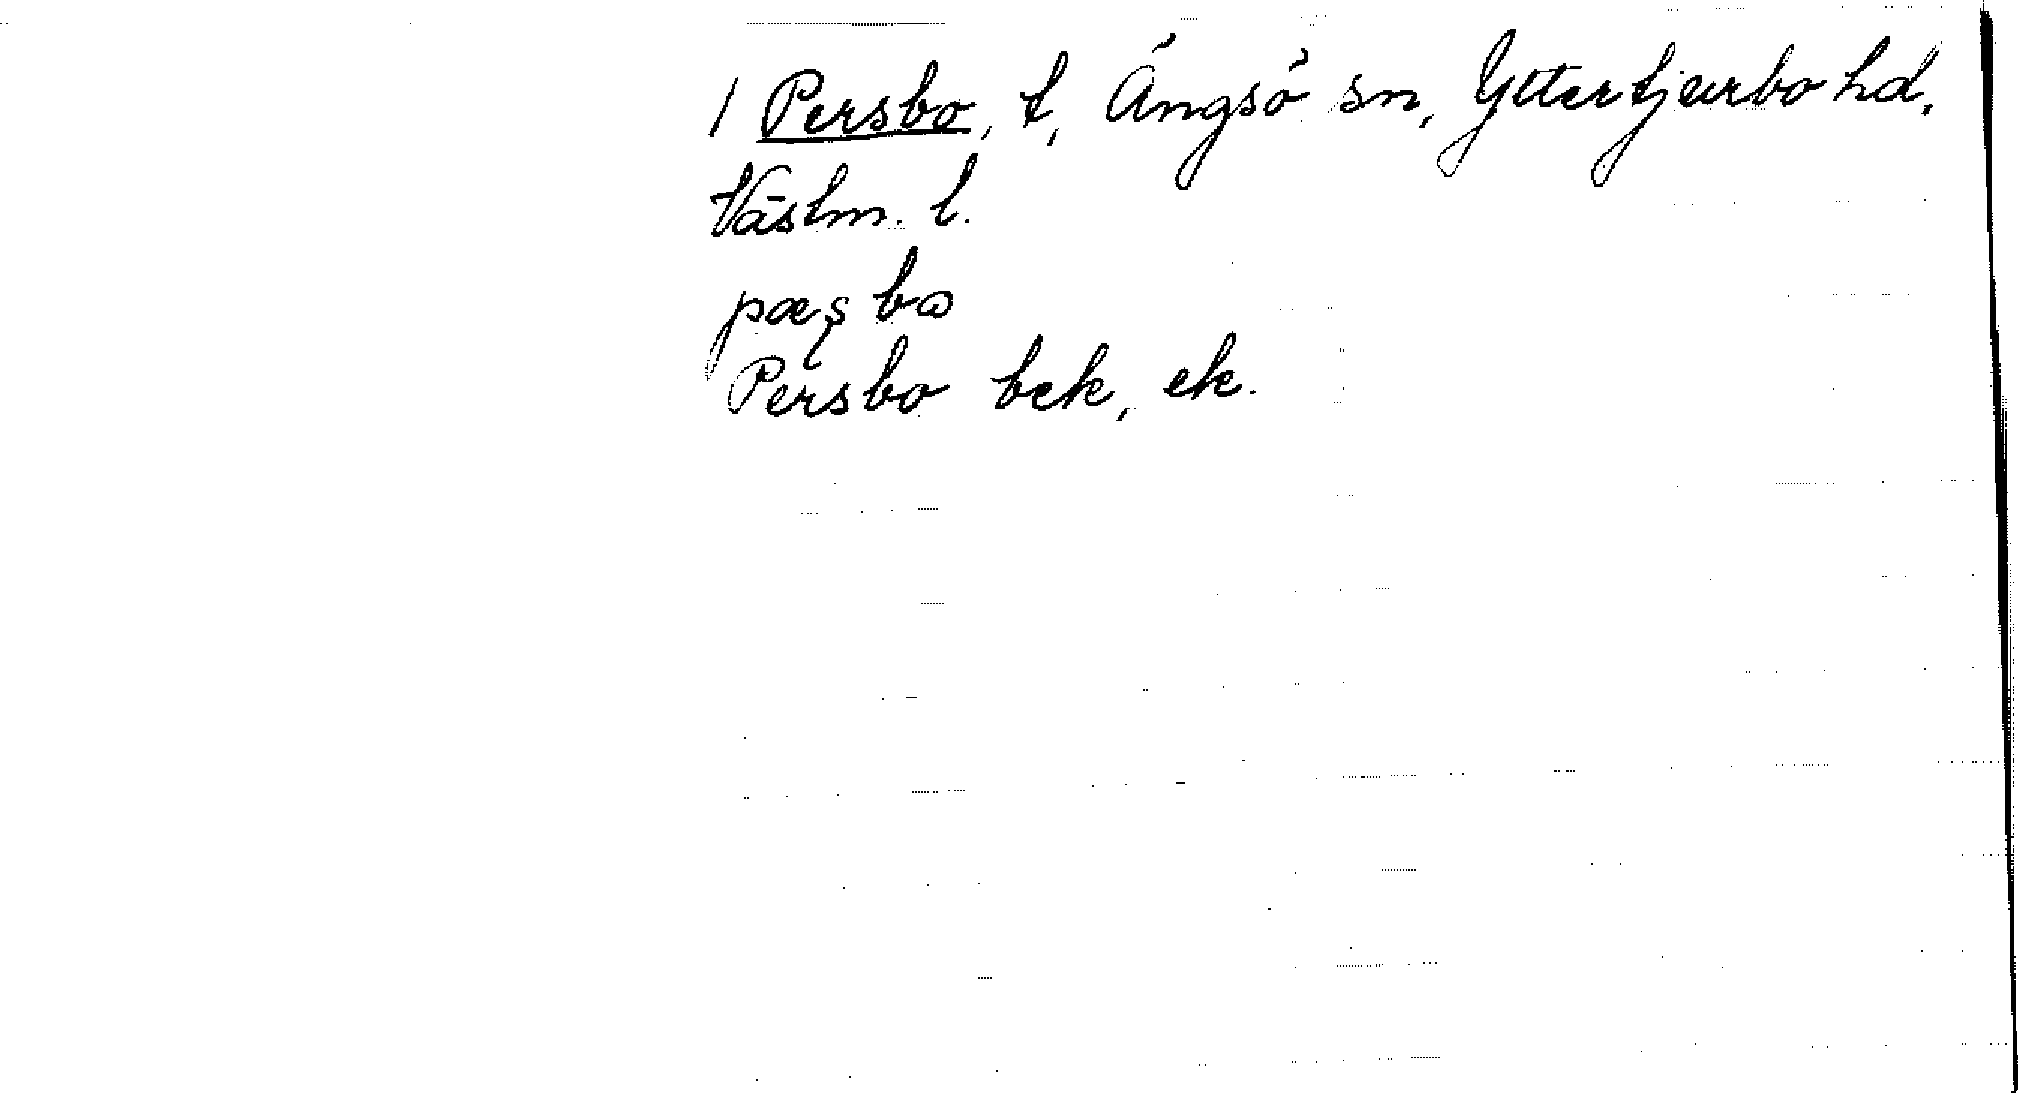 1 Persbo, t, Ängsö sn, Yttertjurbo hd,
Västm. l.
pæʂbω
Persbo bek, ek.